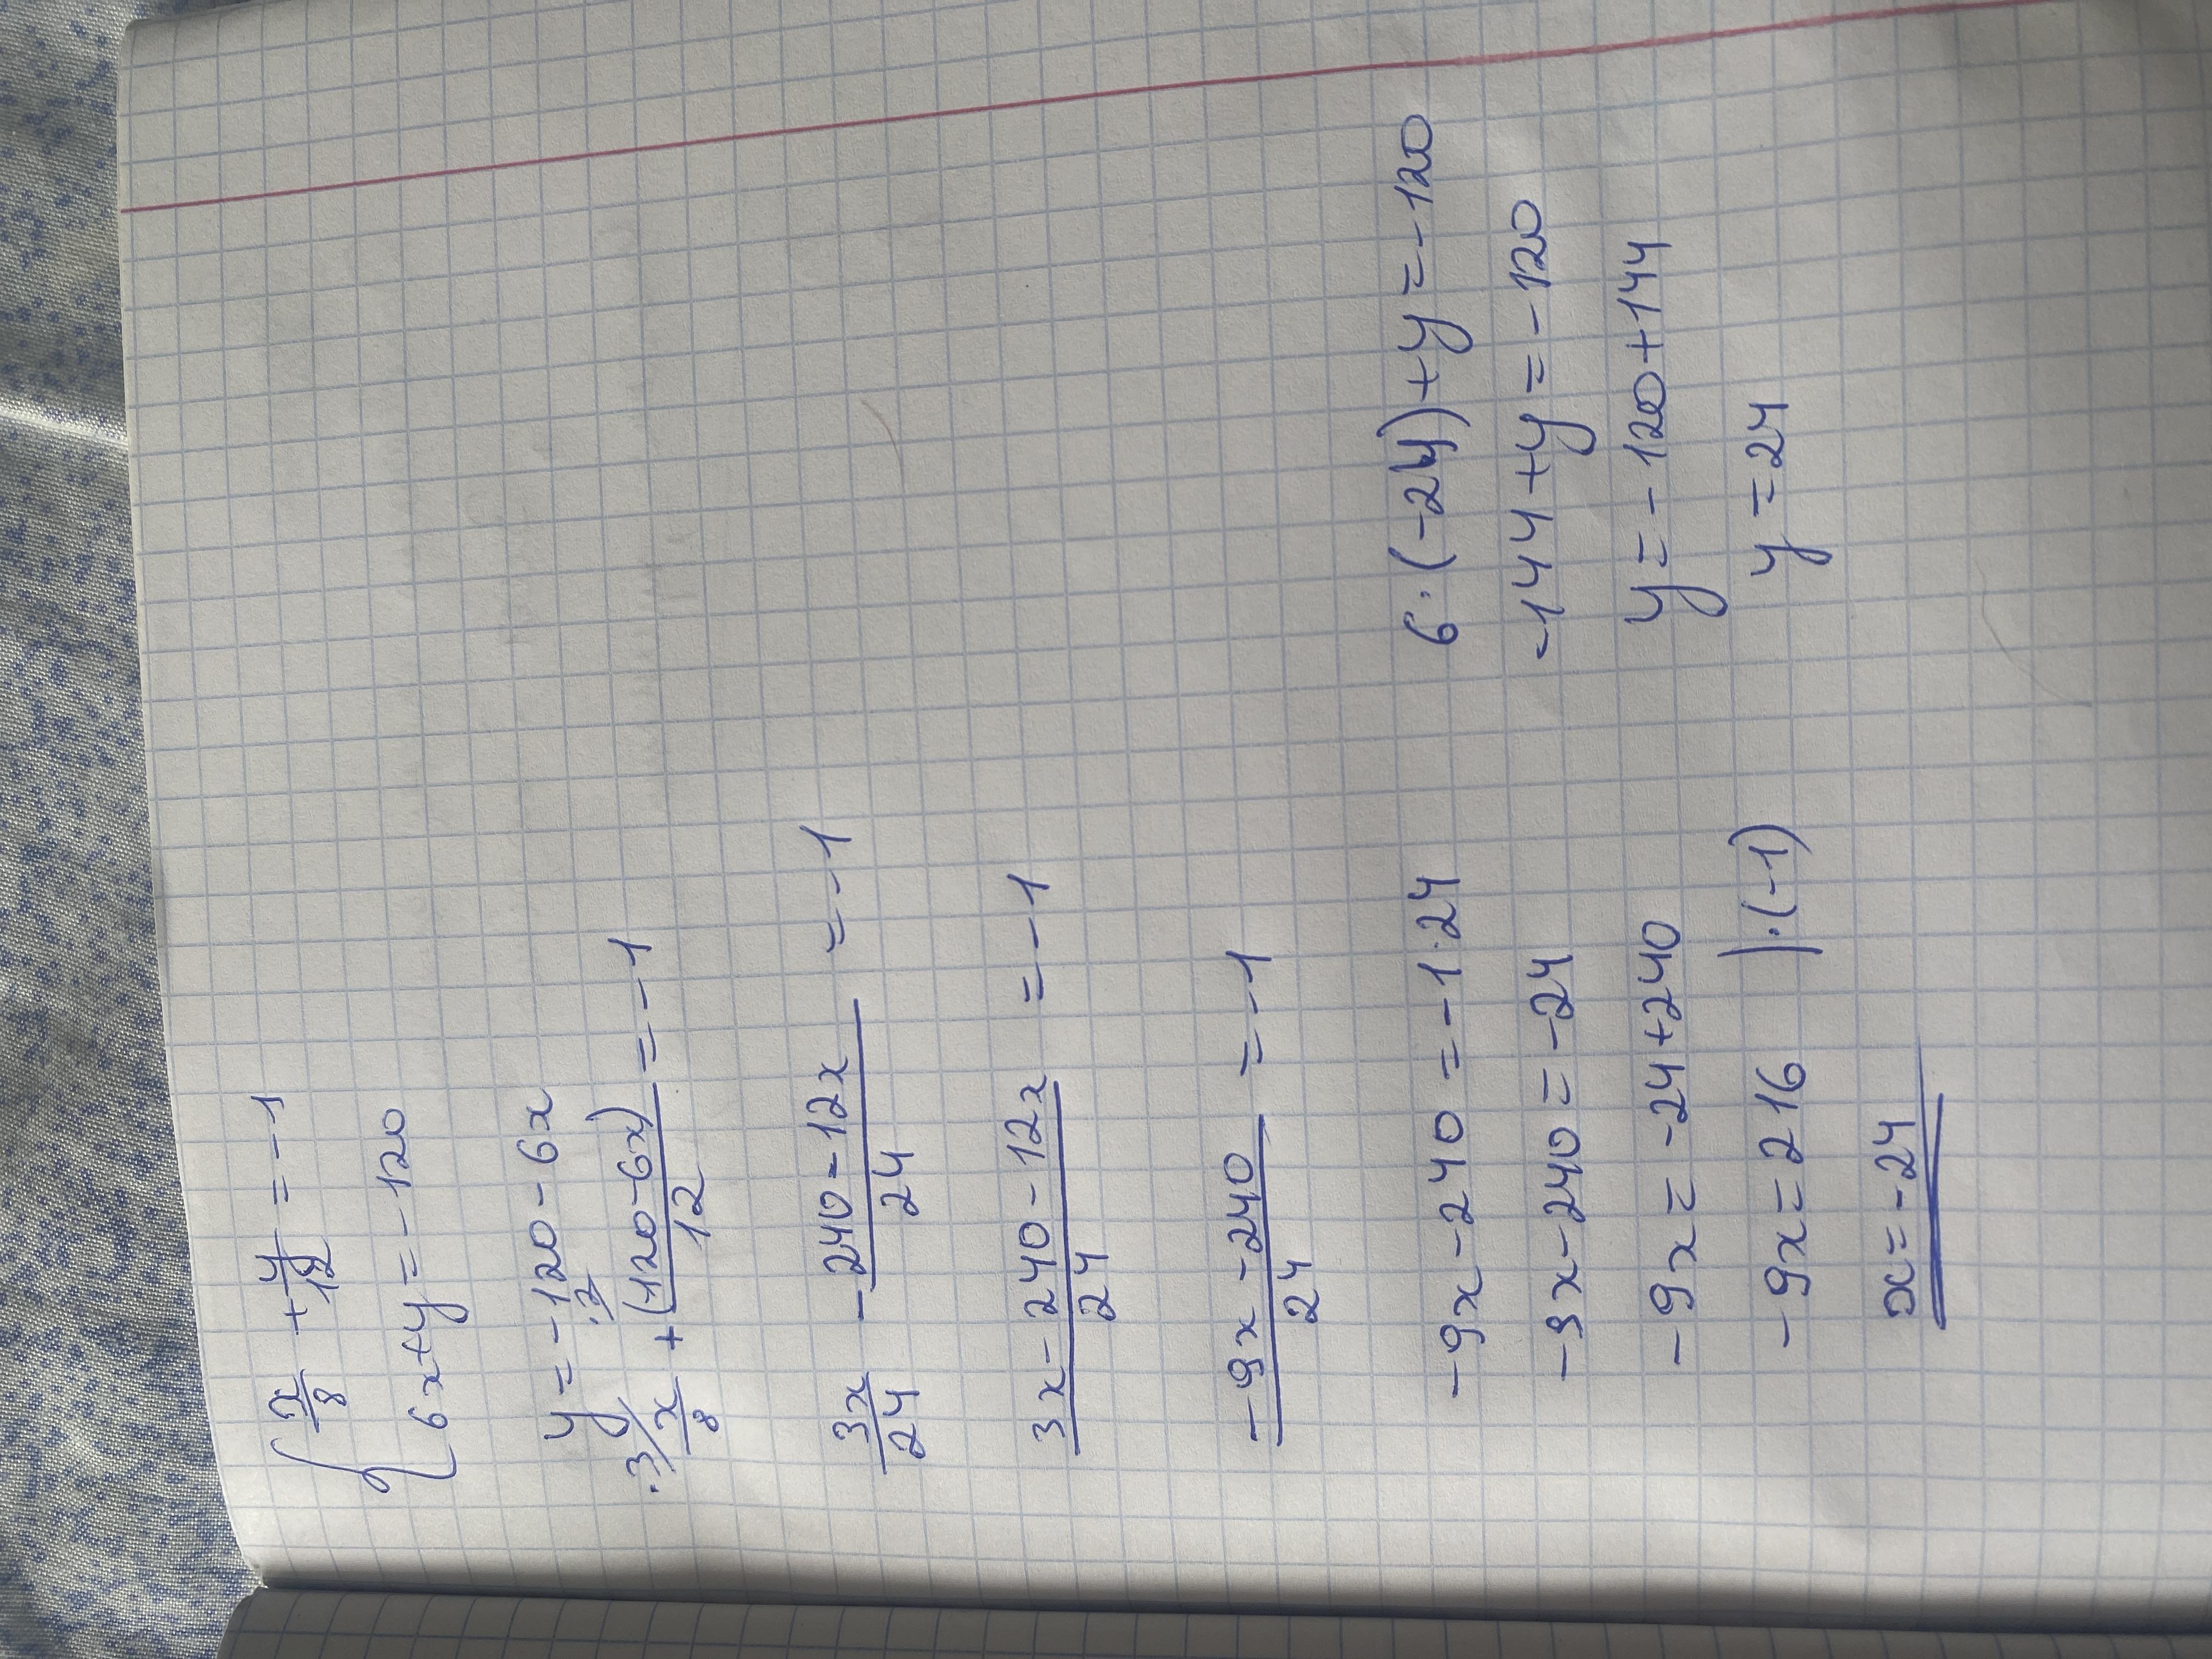 { x/8 + y/12 = -1
6x+y = -120
y = -120 - 6x
·3/ x/8 + ·2/ (120-6x)/12 = -1
3x/24 - 240-12x/24 = -1
3x-240-12x/24 = -1
-9x-240/24 = -1
-9x-240 = -1·24
-9x-240 = -24
-9x = -24+240
-9x = 216 |·(-1)
x = -24
6·(-24)+y = -120
-144+y = -120
y = -120+144
y = 24